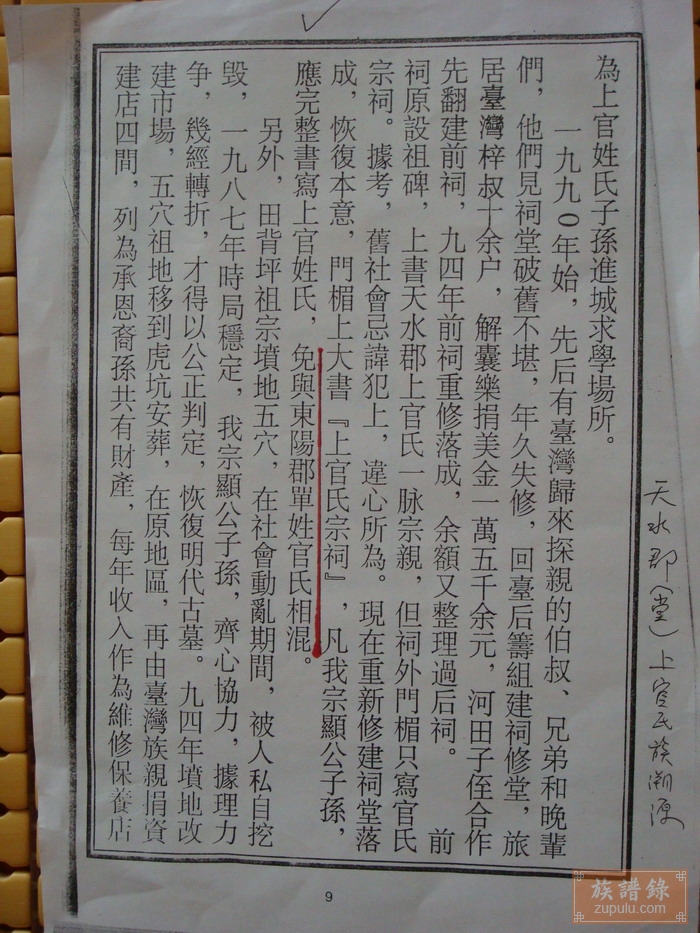 為上官姓氏子孫進城求學場所。
一九九0年始，先后有臺灣歸來探親的伯叔、兄弟和晚輩
們，他們見祠堂破舊不堪，年久失修，回臺后籌組建祠修堂，旅
居臺灣梓叔十余户，解囊樂捐美金一萬五千余元，河田子侄合作
先翻建前祠，九四年前祠重修落成，余額又整理過后祠。　　前
祠原設祖碑，上書天水郡上官氏一脉宗親，但祠外門楣只寫官氏
宗祠。據考，舊社會忌諱犯上，違心所為。現在重新修建祠堂落
成，恢復本意，門楣上大書『上官氏宗祠』，凡我宗顯公子孫，
應完整書寫上官姓氏，免與東陽郡單姓官氏相混。
另外，田背坪祖宗墳地五穴，在社會動亂期間，被人私自挖
毀，一九八七年時局穩定，我宗顯公子孫，齊心協力，據理力
争，幾經轉折，才得以公正判定，恢復明代古墓。九四年墳地改
建市場，五穴祖地移到虎坑安葬，在原地區，再由臺灣族親捐資
建店四間，列為承恩裔孫共有財產，每年收入作為維修保養店
天水郡(堂)上官氏族溯源
9
族譜錄
zupulu.com